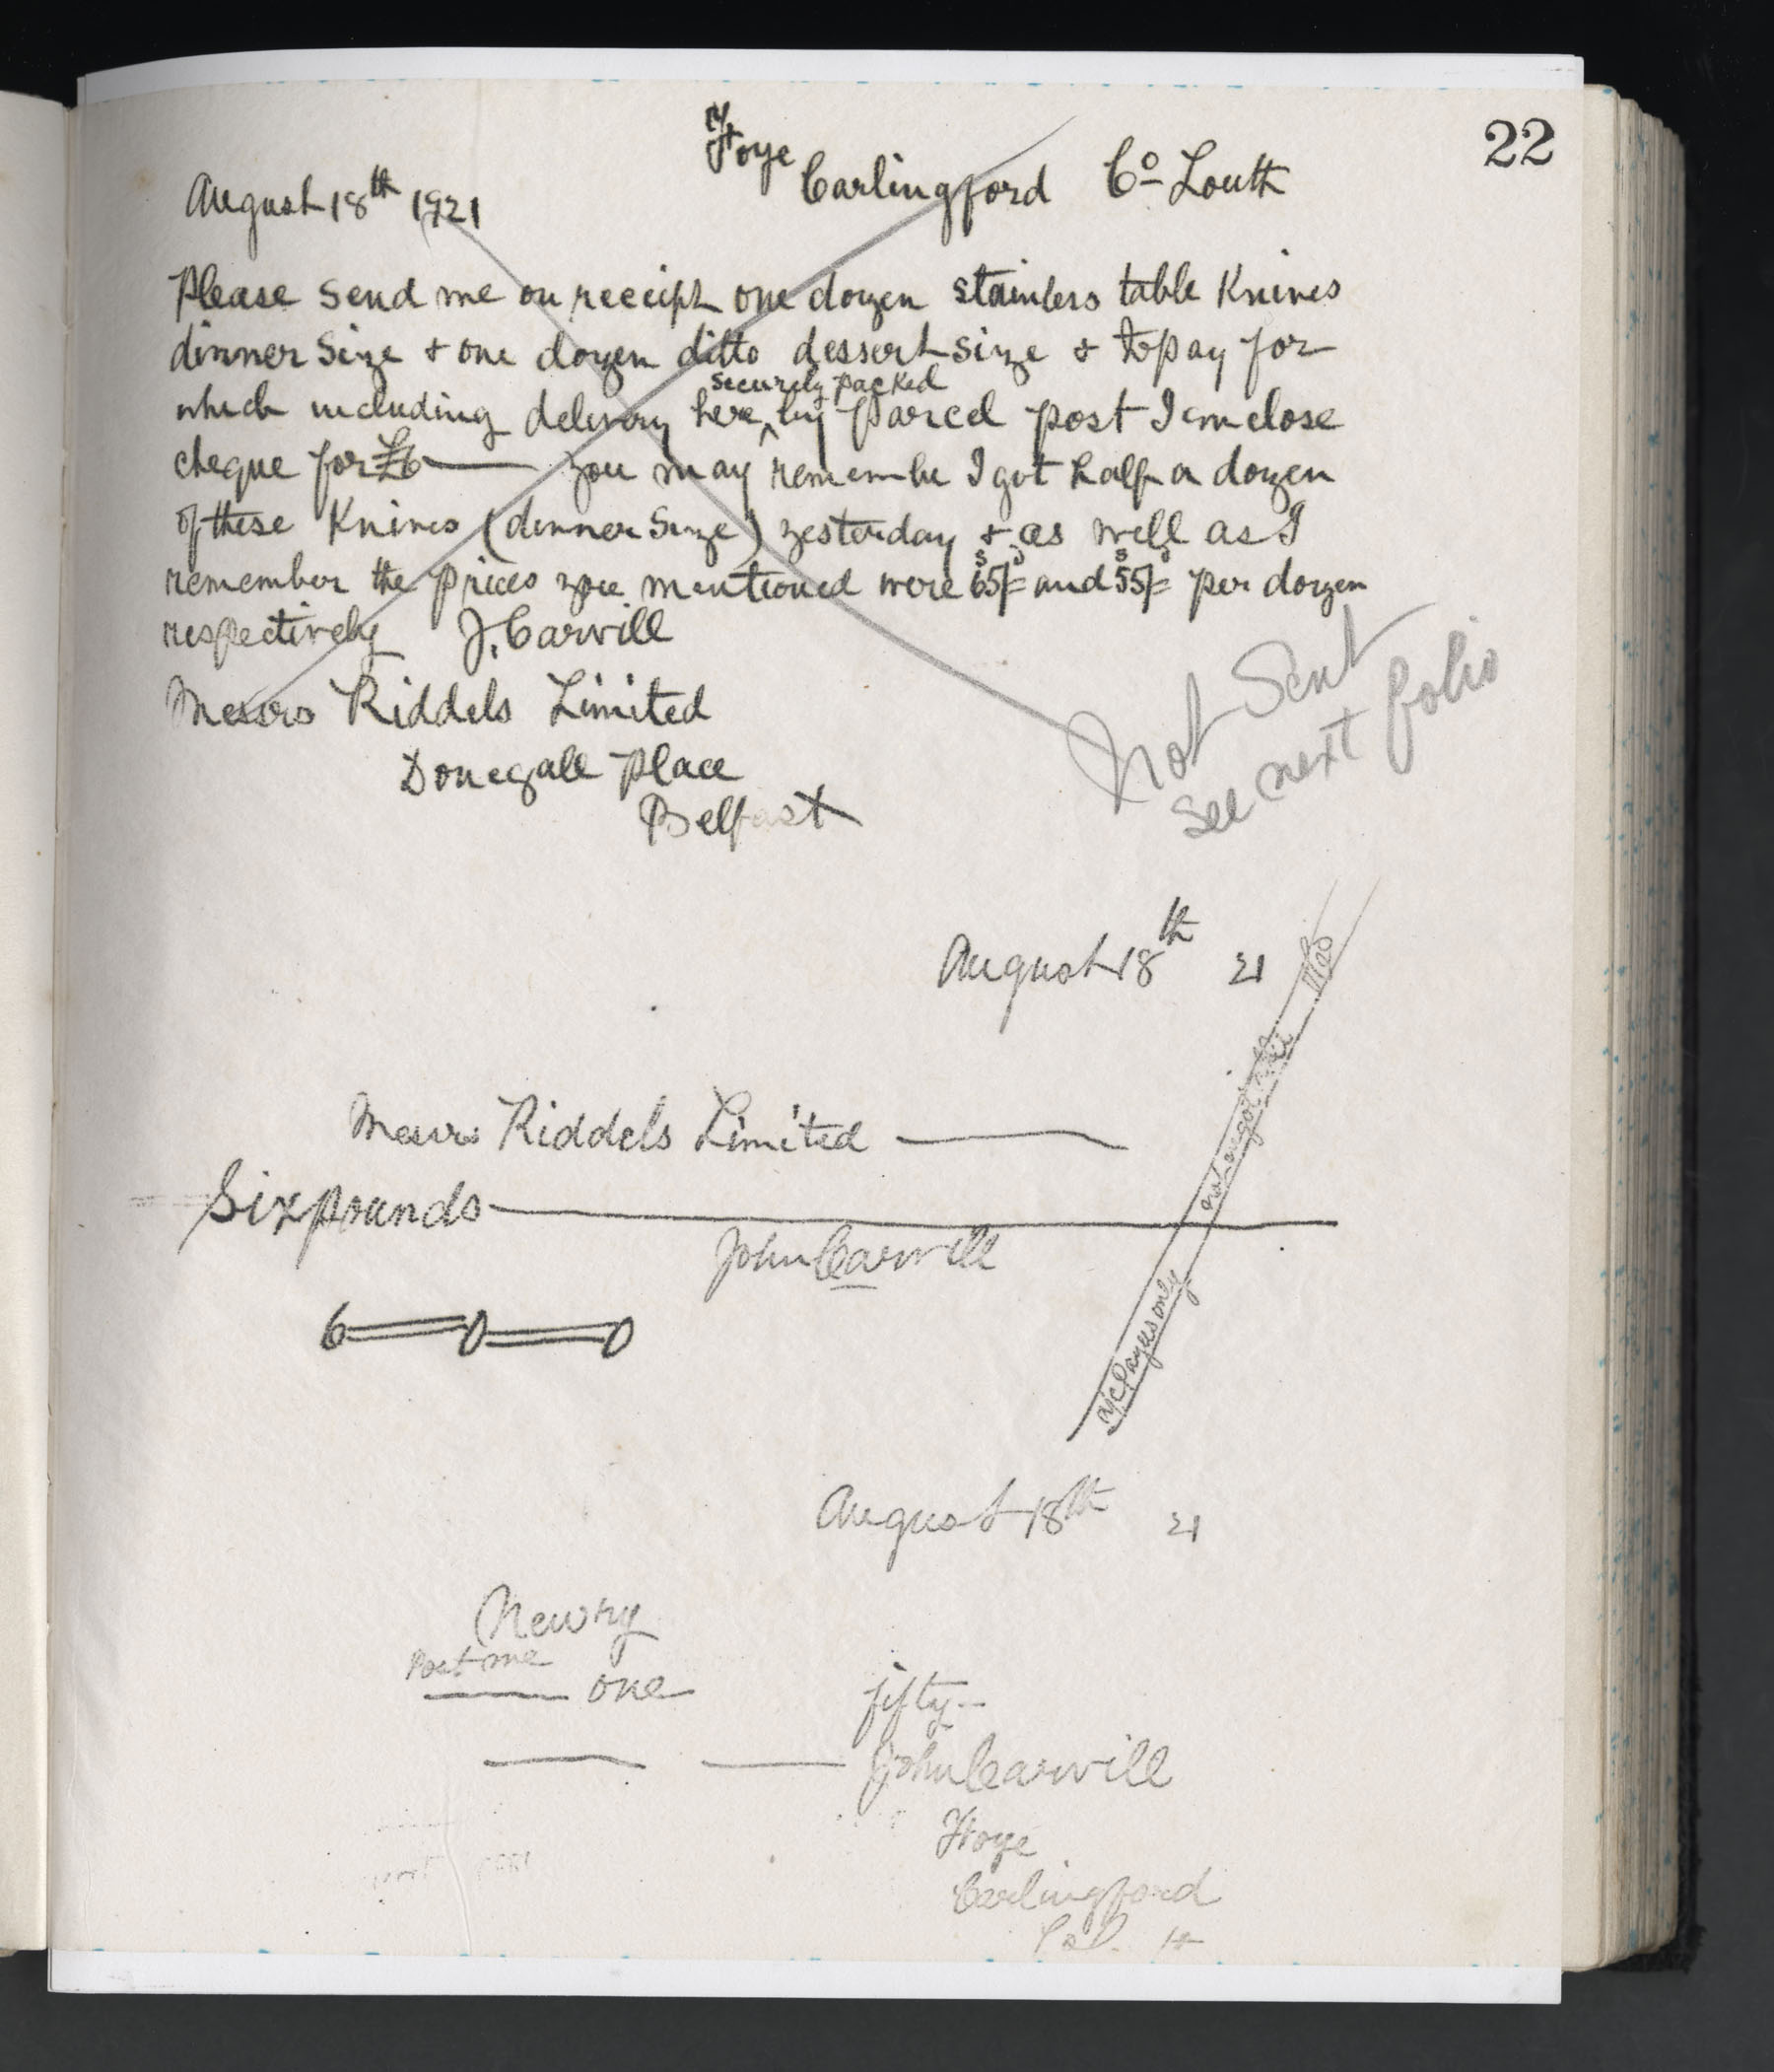 22
Ffoye
Carlingford Co Louth
August 18th 1921
Please send me on receipt one dozen stainless table Knives
dinner size & one dozen ditto dessert size & to pay for
securely packed
which including delivery here ^ by parcel post I enclose
cheque for £6 — you may remember I got half a dozen
of these Knives (dinner size) yesterday & as well as I
remember the prices you mentioned were 65/= and 55/= per dozen
respectively J. Carvill
Messrs Riddels Limited
Donegall Place
Belfast
Not Sent
See next folio
August 18th 21
Messrs Riddels Limited —
Six pounds —
John Carvill
6=0=0
a/c Payees only
August 18th 21
Newry
Post me
— one
fifty —
— — John Carvill
Ffoye
Carlingford